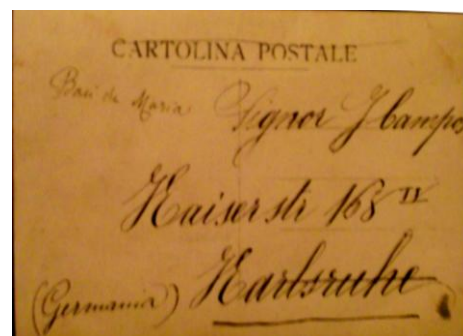 CARTOLINA POSTALE
Baci da Maria
Signor J Campos
Kaiserstr 168 II
(Germania) Karlsruhe